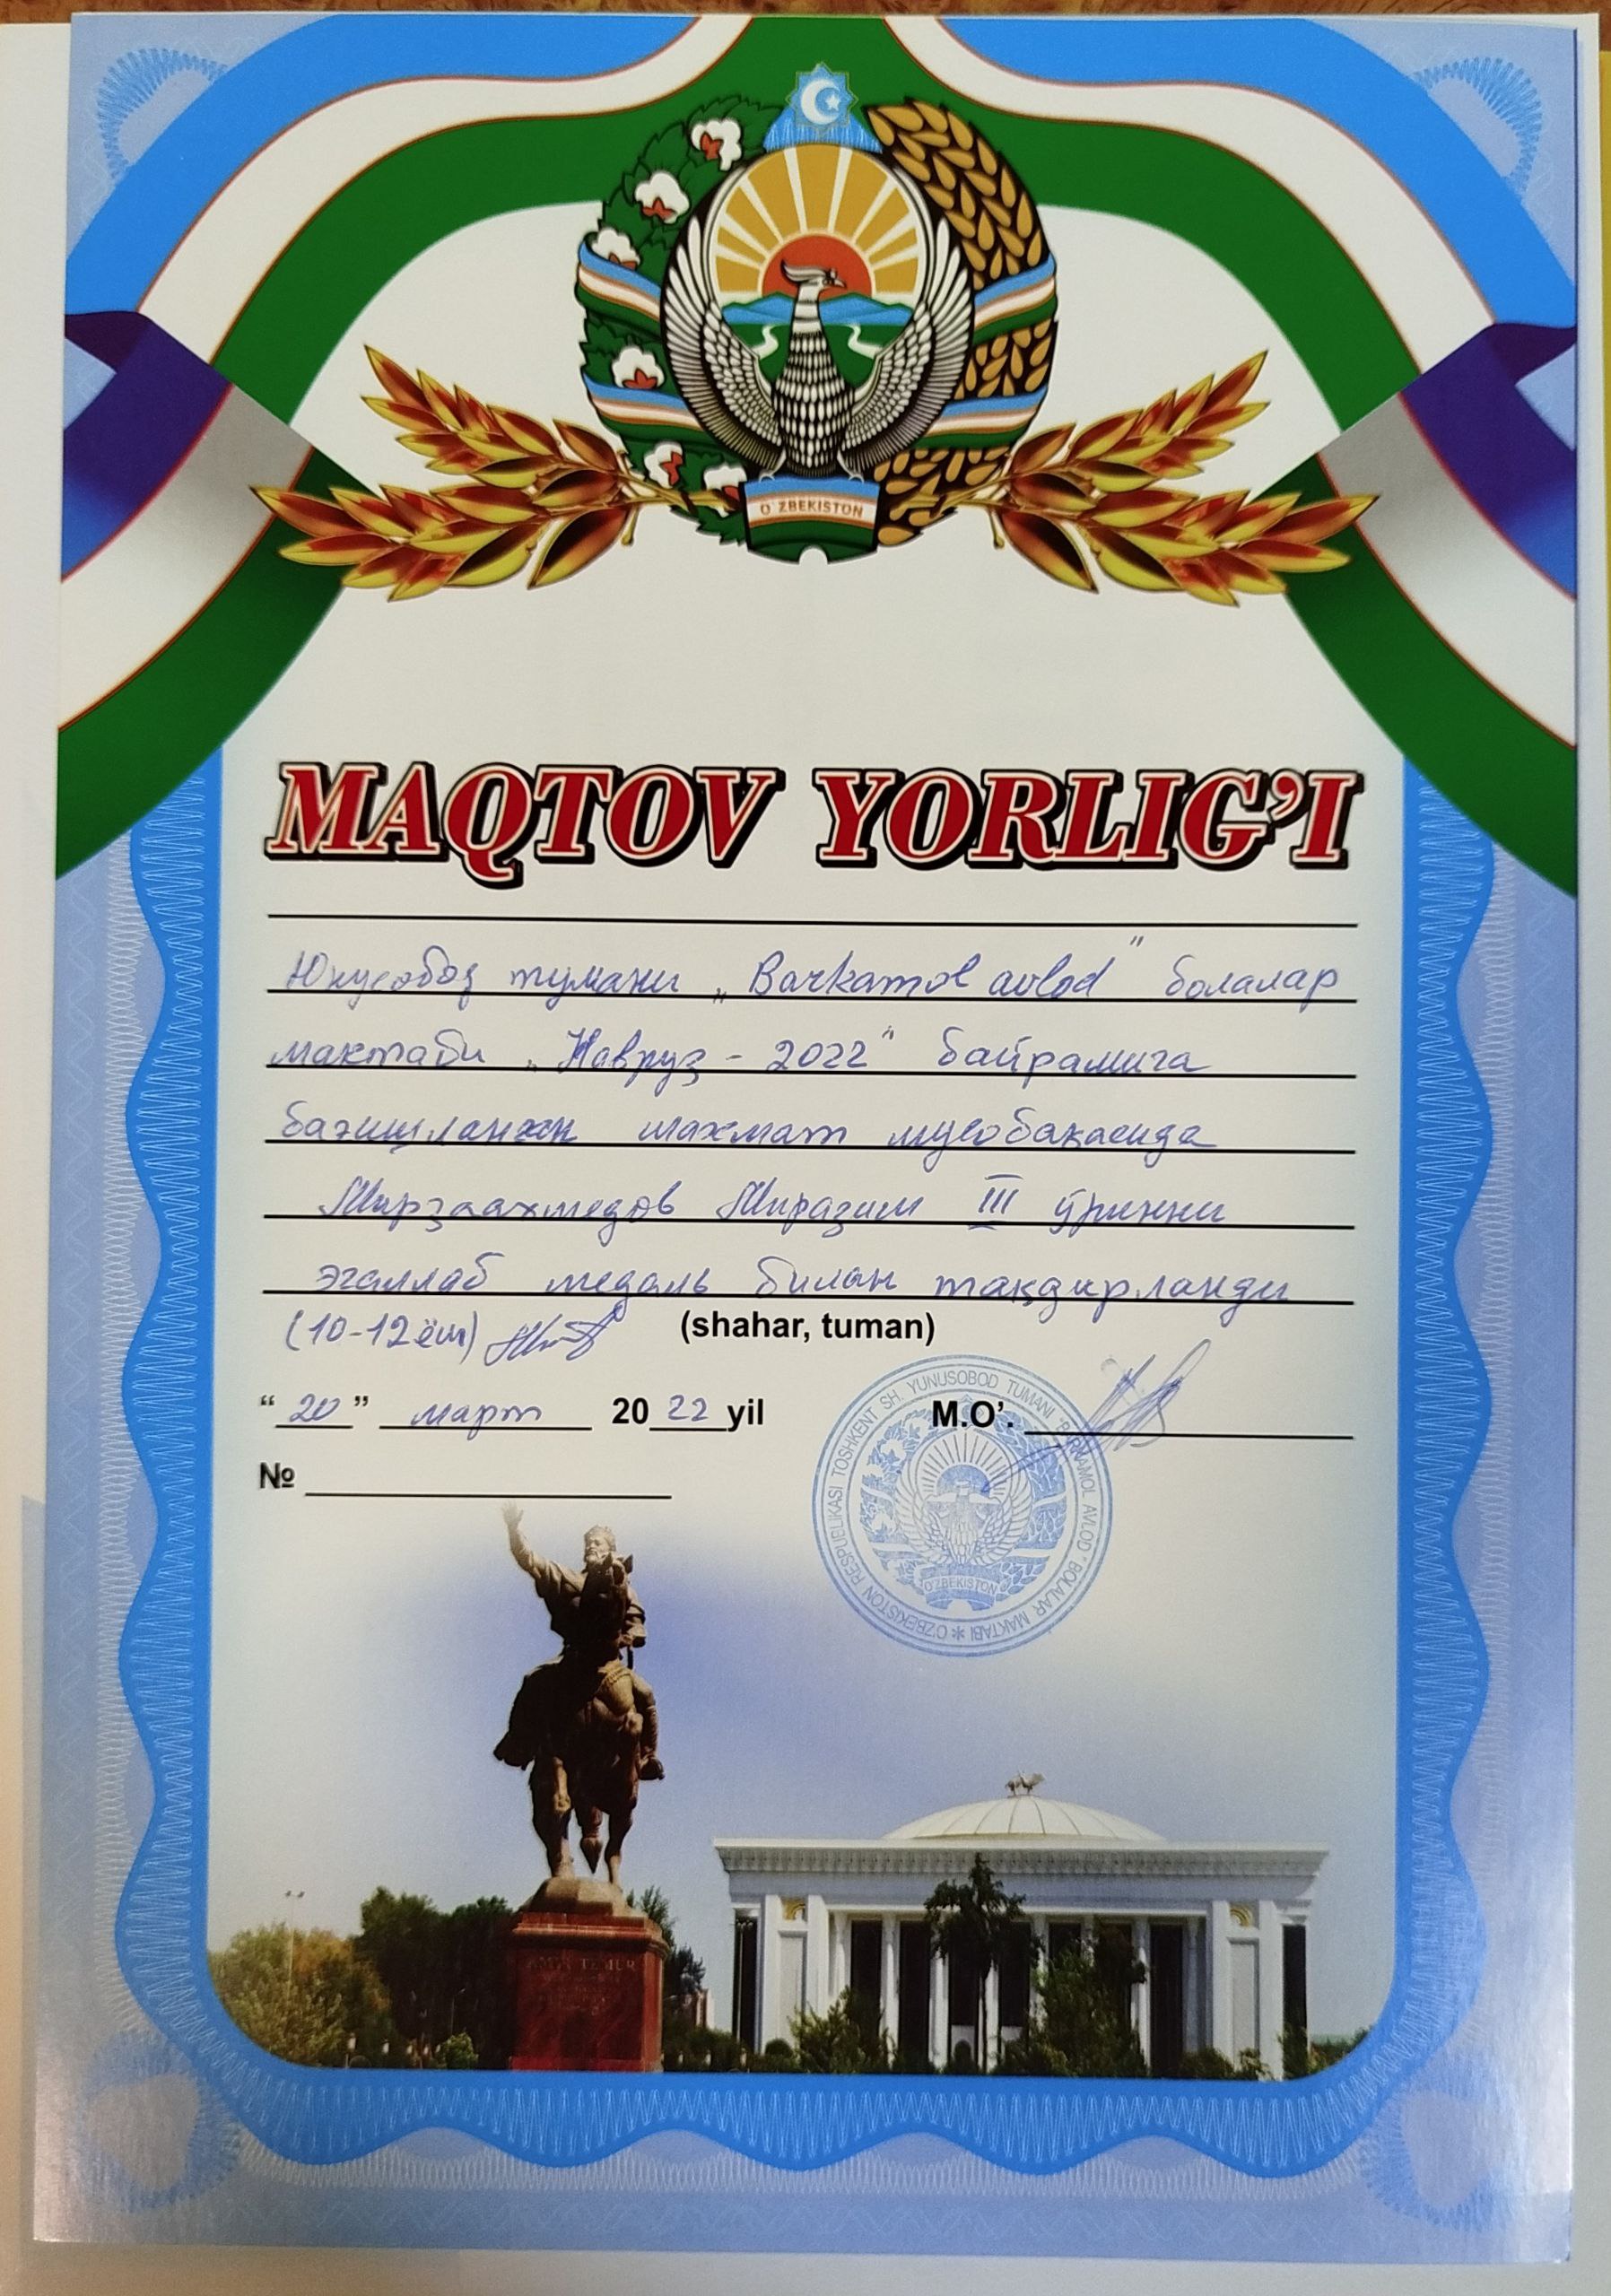 O'ZBEKISTON
MAQTOV YORLIG'I
Юнусобод тумани „Barkamol avlod" болалар
мактаби „Навруз - 2022" байрамига
багишланган шахмат мусобакасида
Мирзаахмедов Миразим III ўринни
эгаллаб медаль билан тақдирланди
(10-12 ёш) (shahar, tuman)
“ 20 ” март 20 22 yil M.O’.
№
O'ZBEKISTON RESPUBLIKASI TOSHKENT SH. YUNUSOBOD TUMANI "BARKAMOL AVLOD" BOLALAR MAKTABI *
O'ZBEKISTON
AMIR TEMUR